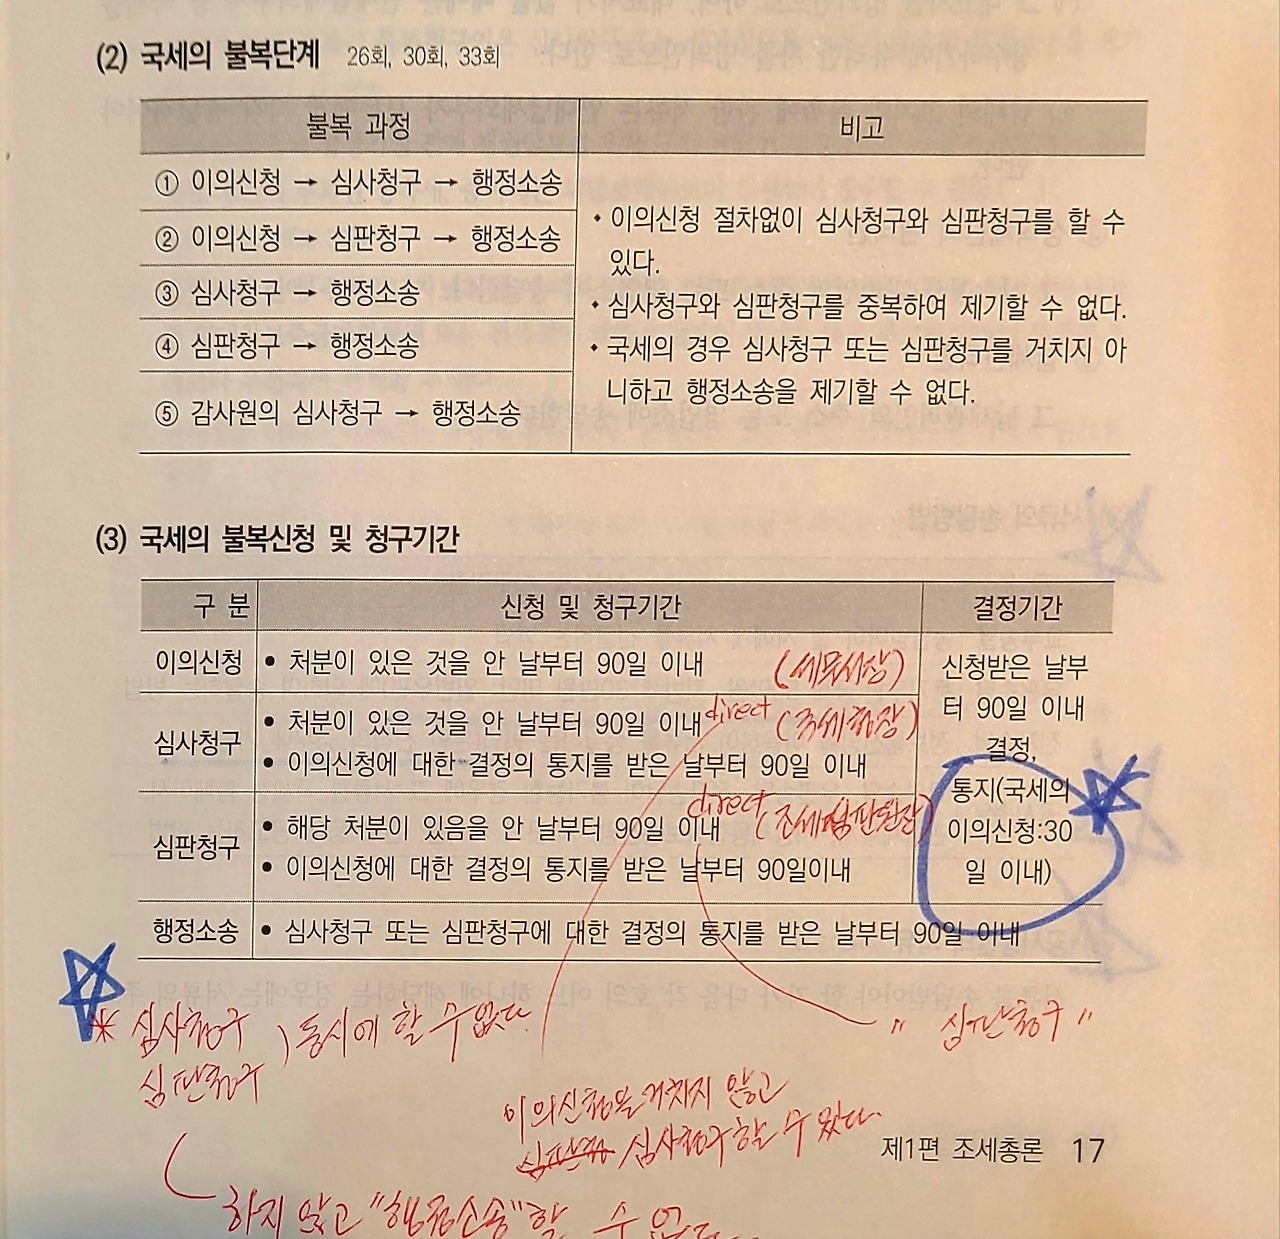 (2) 국세의 불복단계 26회, 30회, 33회
불복 과정 비고
① 이의신청 → 심사청구 → 행정소송
② 이의신청 → 심판청구 → 행정소송
③ 심사청구 → 행정소송
④ 심판청구 → 행정소송
⑤ 감사원의 심사청구 → 행정소송
• 이의신청 절차없이 심사청구와 심판청구를 할 수
있다.
• 심사청구와 심판청구를 중복하여 제기할 수 없다.
• 국세의 경우 심사청구 또는 심판청구를 거치지 아
니하고 행정소송을 제기할 수 없다.
(3) 국세의 불복신청 및 청구기간
구 분 신청 및 청구기간 결정기간
이의신청 • 처분이 있은 것을 안 날부터 90일 이내 (세무서장)
심사청구 • 처분이 있은 것을 안 날부터 90일 이내 direct (국세청장)
• 이의신청에 대한 결정의 통지를 받은 날부터 90일 이내
심판청구 • 해당 처분이 있음을 안 날부터 90일 이내 direct (조세심판원장)
• 이의신청에 대한 결정의 통지를 받은 날부터 90일이내
신청받은 날부
터 90일 이내
결정,
통지(국세의
이의신청:30
일 이내)
행정소송 • 심사청구 또는 심판청구에 대한 결정의 통지를 받은 날부터 90일 이내
※ 심사청구
심판청구 ) 동시에 할 수 없다.
" 심판청구 "
이의신청을 거치지 않고
심판청구 심사청구 할 수 있다.
하지 않고 "행정소송"할 수 없다.
제1편 조세총론 17